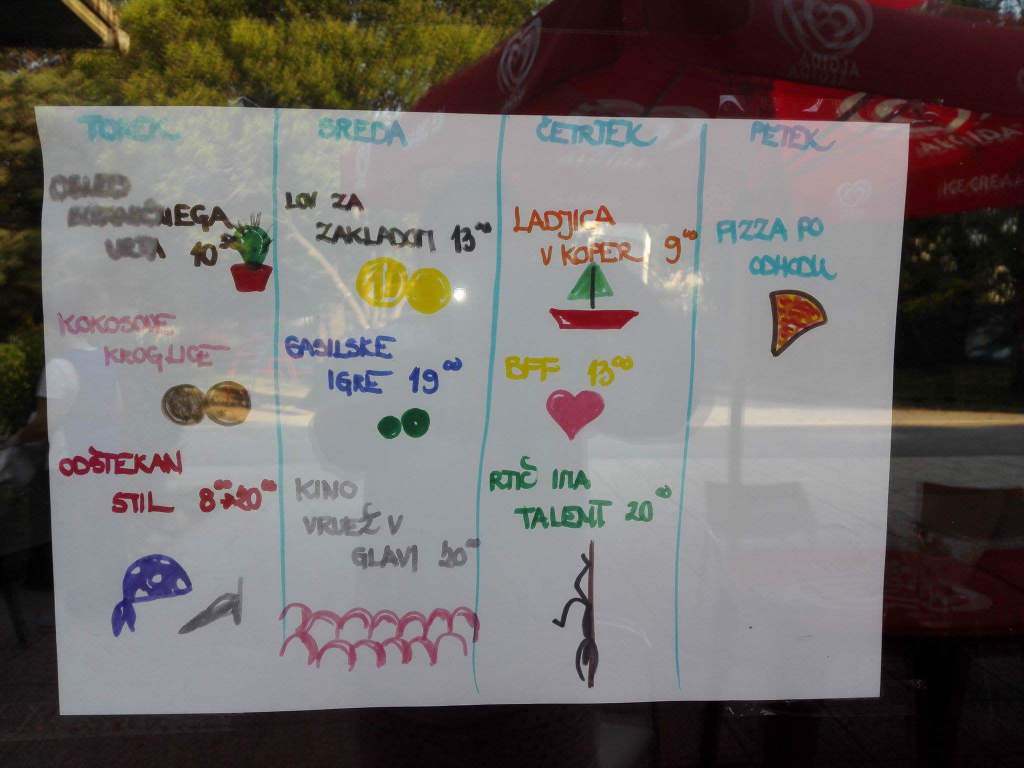 TOREK
OGLED
BOTANIČNEGA
VRTA 10⁰⁰
KOKOSOVE
KROGLICE
ODŠTEKAN
STIL 8⁰⁰→20⁰⁰
SREDA
LOV ZA
ZAKLADOM 13⁰⁰
GASILSKE
IGRE 19⁰⁰
KINO
VRVEŽ V
GLAVI 20⁰⁰
ČETRTEK
LADJICA
V KOPER 9⁰⁰
BFF 13⁰⁰
RTIČ IMA
TALENT 20⁰⁰
PETEK
PIZZA PO
ODHODU
ALGIDA
ICE CREAM